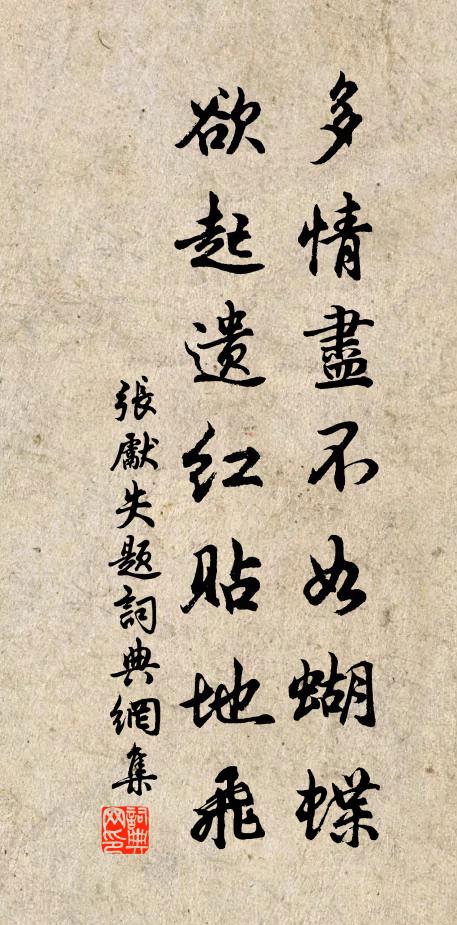 多情盡不如蝴蝶
欲起遗红貼地飛
張獻失题詞典網集
詞典网印